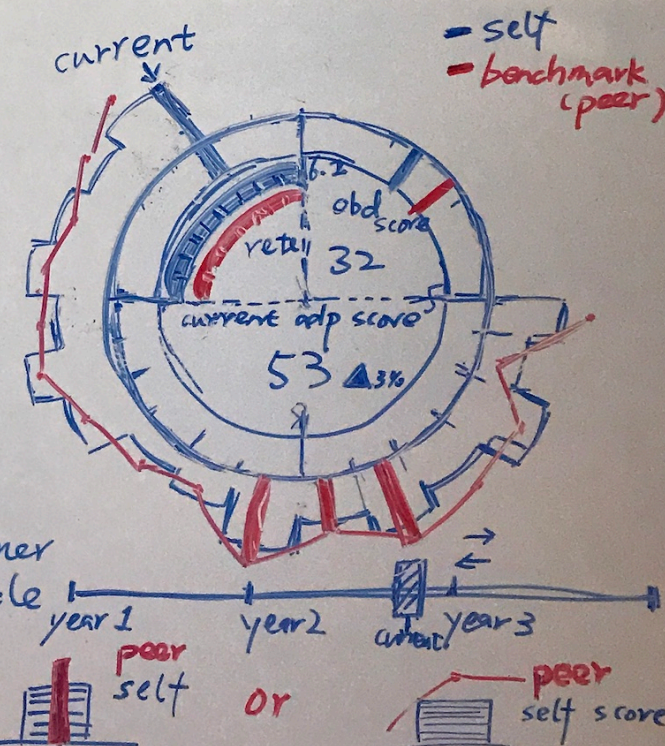 current
self
benchmark
(peer)
6.2
obd
score
rete
32
current adp score
53 ▲3%
ner
le
year 1
year2
current
year 3
peer
self
or
peer
self score